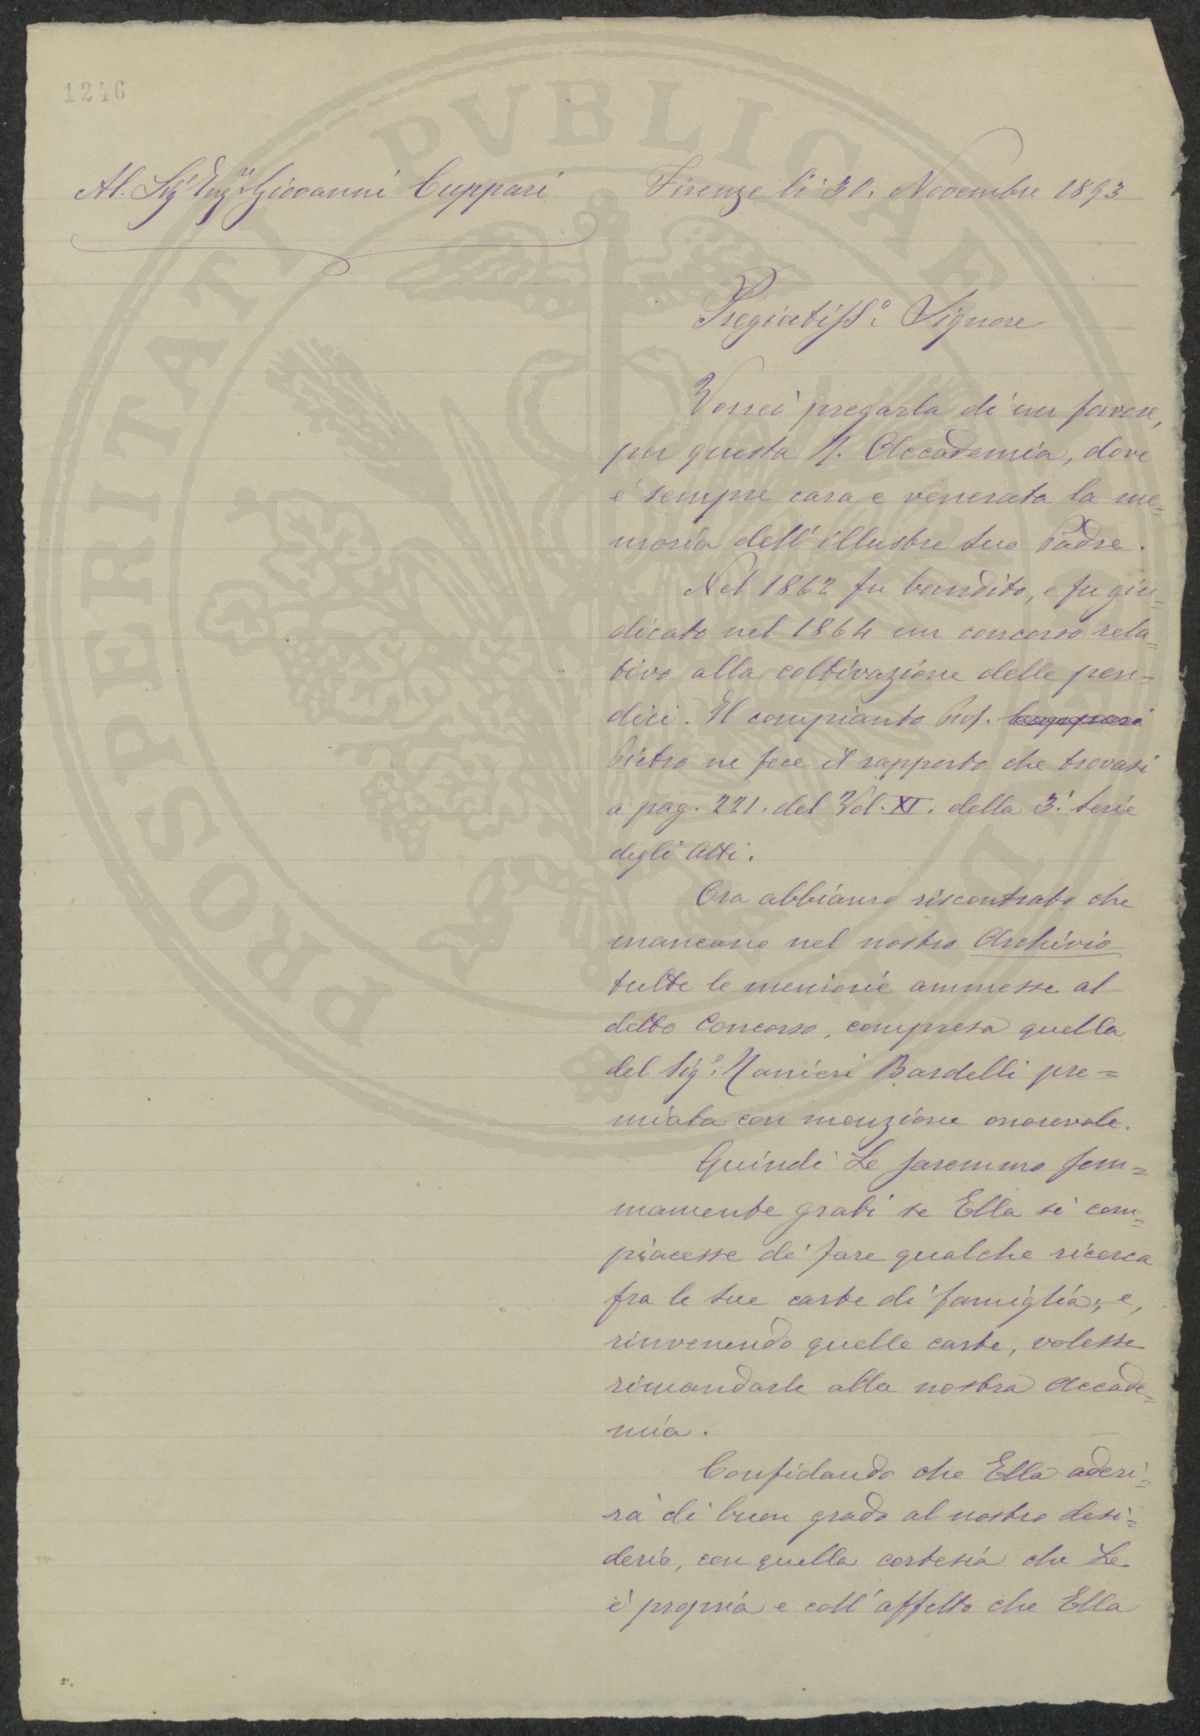 1246
PROSPERITATI PVBLICAE
Al Sigr Ingre Giovanni Cuppari
Firenze li 30. Novembre 1893
Pregiatissº. Signore
Vorrei pregarla di un favore,
per questa R. Accademia, dove
è sempre cara e venerata la me=
moria dell'illustre suo Padre.
Nel 1862 fu bandito, e fu giu=
dicato nel 1864 un concorso rela=
tivo alla coltivazione delle pen=
dici. Il compianto Prof.
Pietro ne fece il rapporto che trovasi
a pag. 221. del Vol. XI. della 3ª. Serie
degli Atti.
Ora abbiamo riscontrato che
mancano nel nostro Archivio
tutte le memorie ammesse al
detto Concorso, compresa quella
del Sigr. Ranieri Bardelli pre=
miata con menzione onorevole.
Quindi Le saremmo som=
mamente grati se Ella si com=
piacesse di fare qualche ricerca
fra le sue carte di famiglia, e,
rinvenendo quelle carte, volesse
rimandarle alla nostra Accade=
mia.
Confidando che Ella aderi=
rà di buon grado al nostro desi=
derio, con quella cortesia che Le
è propria e coll'affetto che Ella